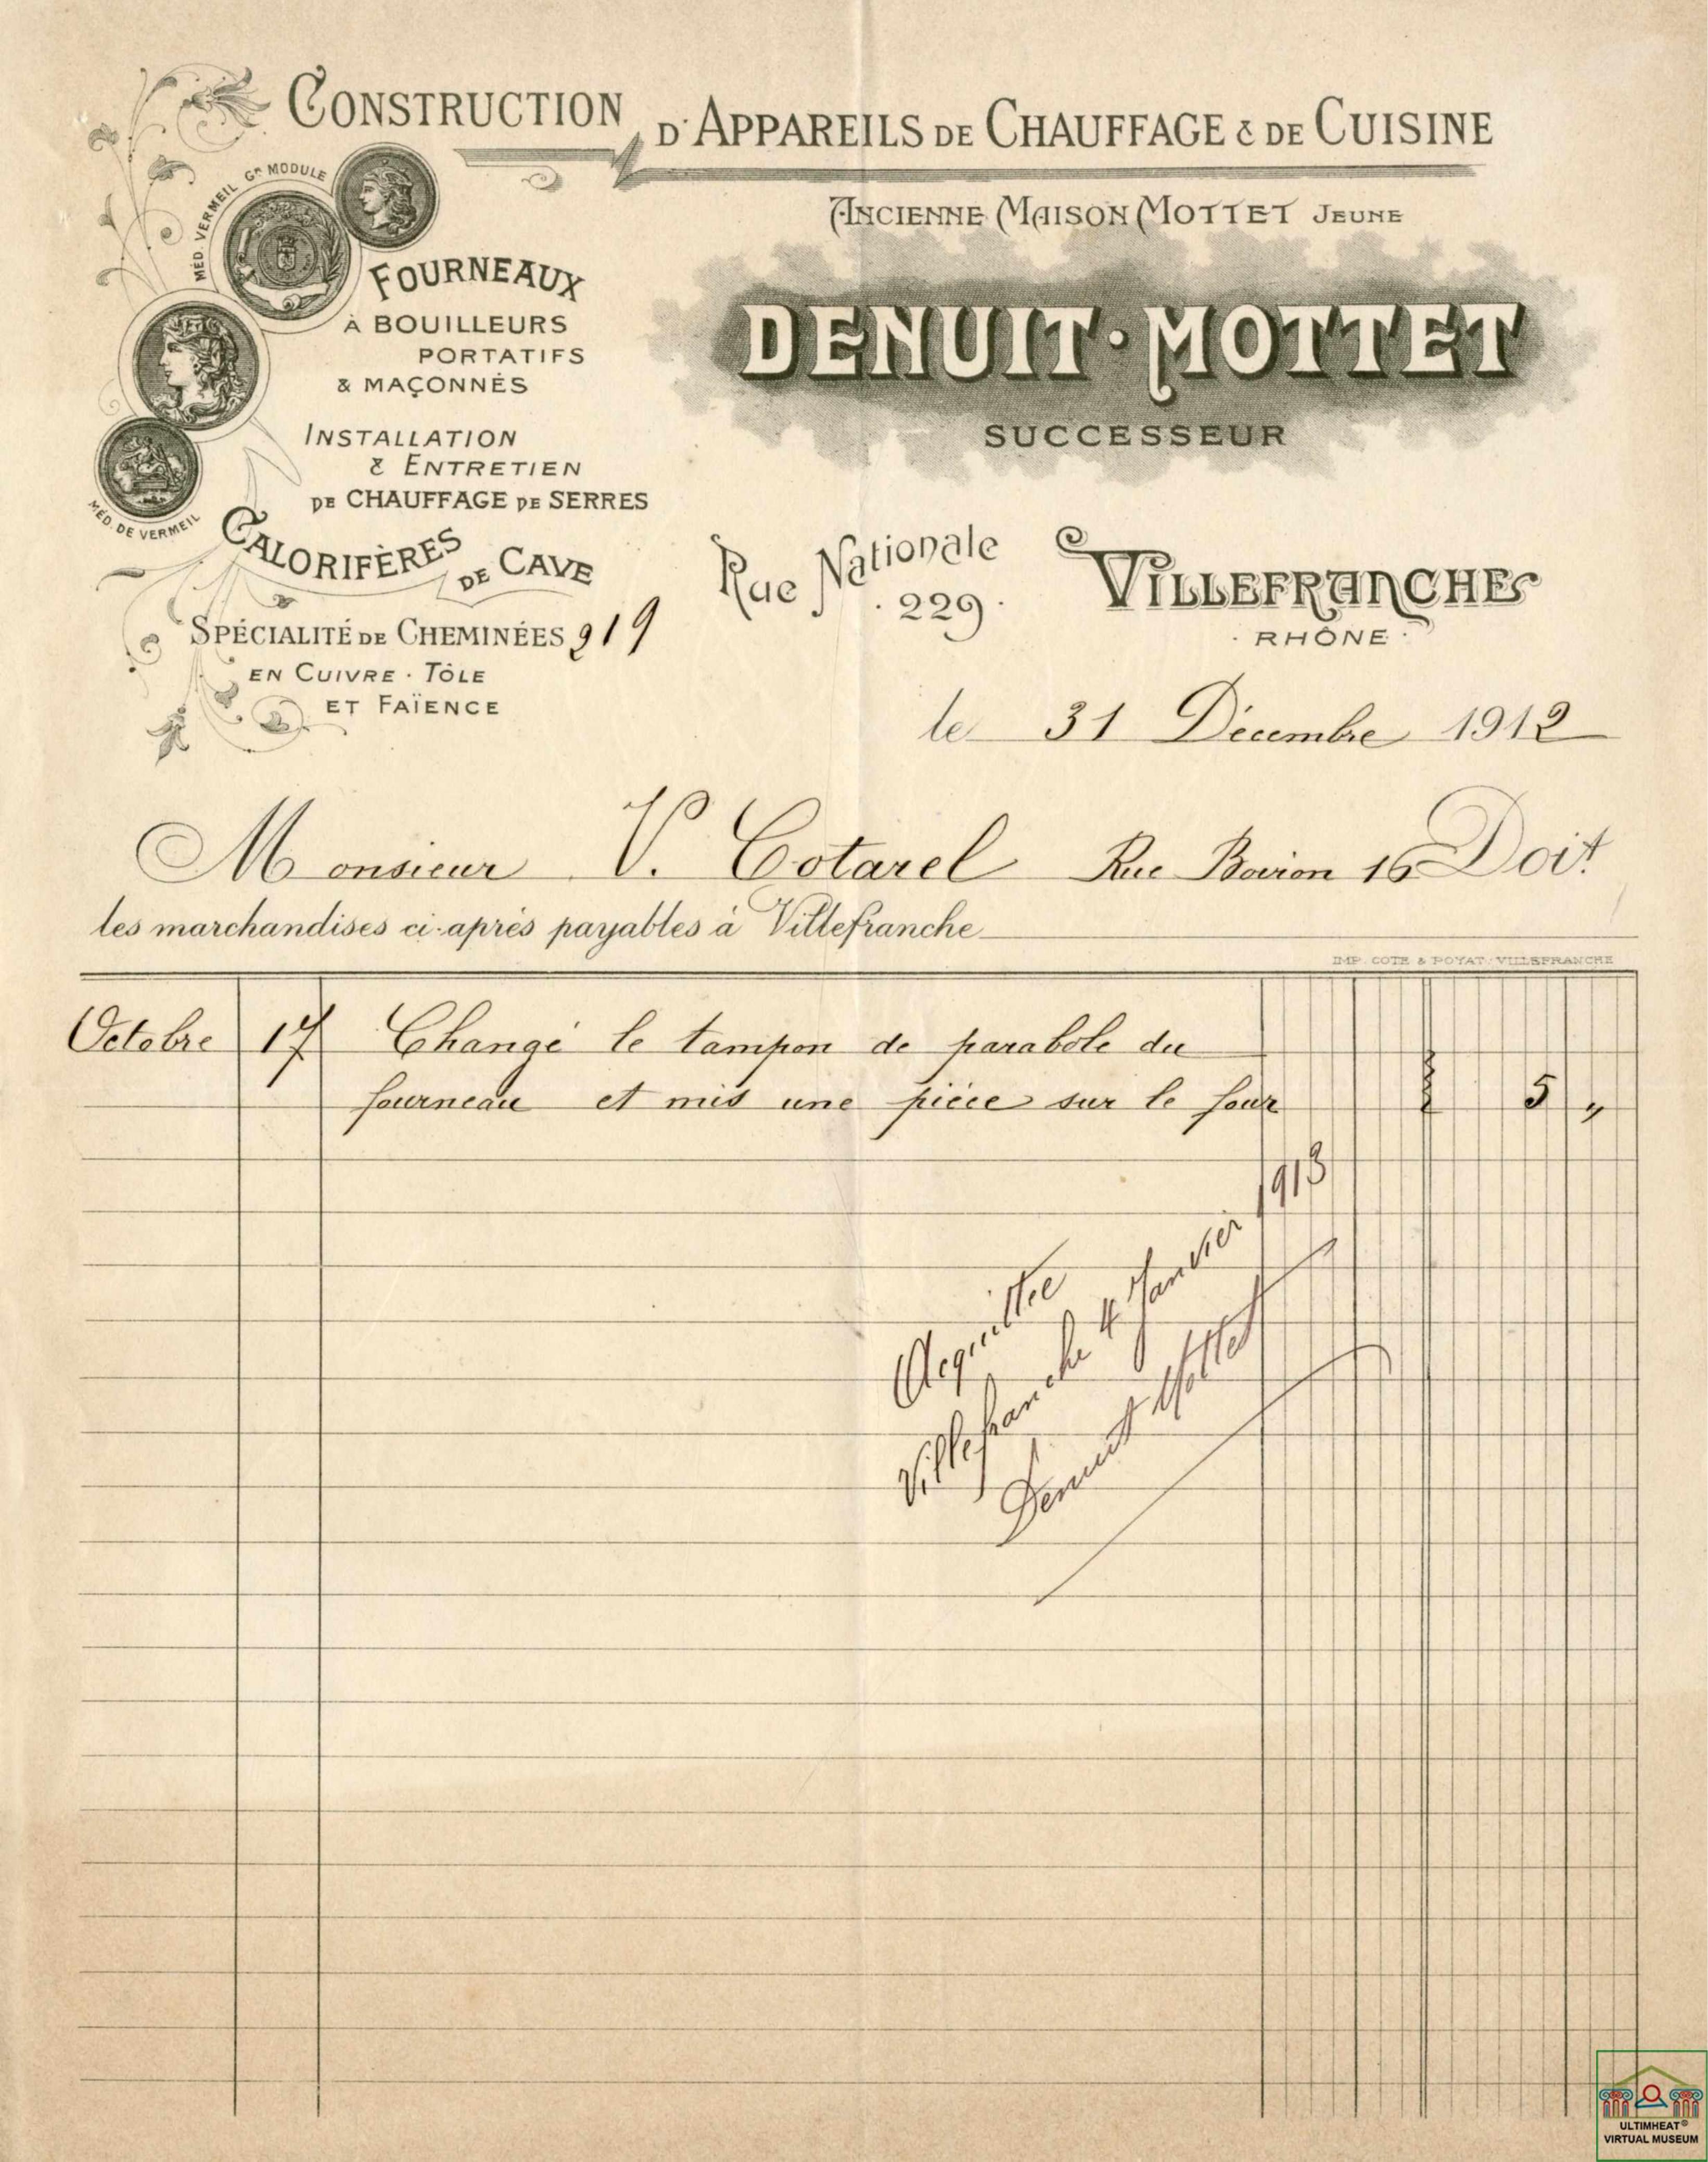 CONSTRUCTION D'APPAREILS DE CHAUFFAGE & DE CUISINE
ANCIENNE MAISON MOTTET JEUNE
DENUIT·MOTTET
SUCCESSEUR
MÉD. VERMEIL Gᴰ MODULE
MÉD. DE VERMEIL
FOURNEAUX
À BOUILLEURS
PORTATIFS
& MAÇONNÉS
INSTALLATION
& ENTRETIEN
DE CHAUFFAGE DE SERRES
CALORIFÈRES DE CAVE
SPÉCIALITÉ DE CHEMINÉES
EN CUIVRE · TÔLE
ET FAÏENCE
219
Rue Nationale
· 229 ·
VILLEFRANCHE
· RHÔNE ·
le 31 Décembre 1912
Monsieur V. Cotarel Rue Boiron 16 Doit
les marchandises ci-après payables à Villefranche
IMP. COTE & POYAT. VILLEFRANCHE
Octobre 17 Changé le tampon de parabole du
fourneau et mis une pièce sur le four 5 "
Acquittée
Villefranche 4 Janvier 1913
Denuit Mottet
ULTIMHEAT®
VIRTUAL MUSEUM